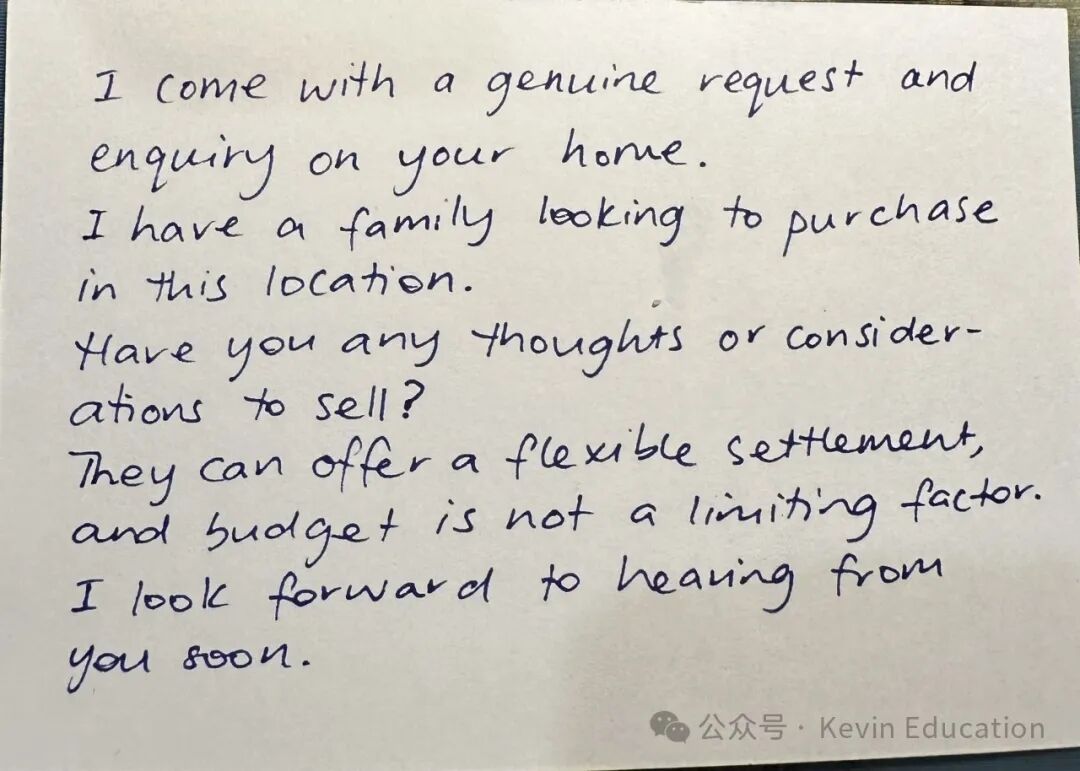 I come with a genuine request and
enquiry on your home.
I have a family looking to purchase
in this location.
Have you any thoughts or consider-
ations to sell?
They can offer a flexible settlement,
and budget is not a limiting factor.
I look forward to hearing from
you soon.
公众号 · Kevin Education